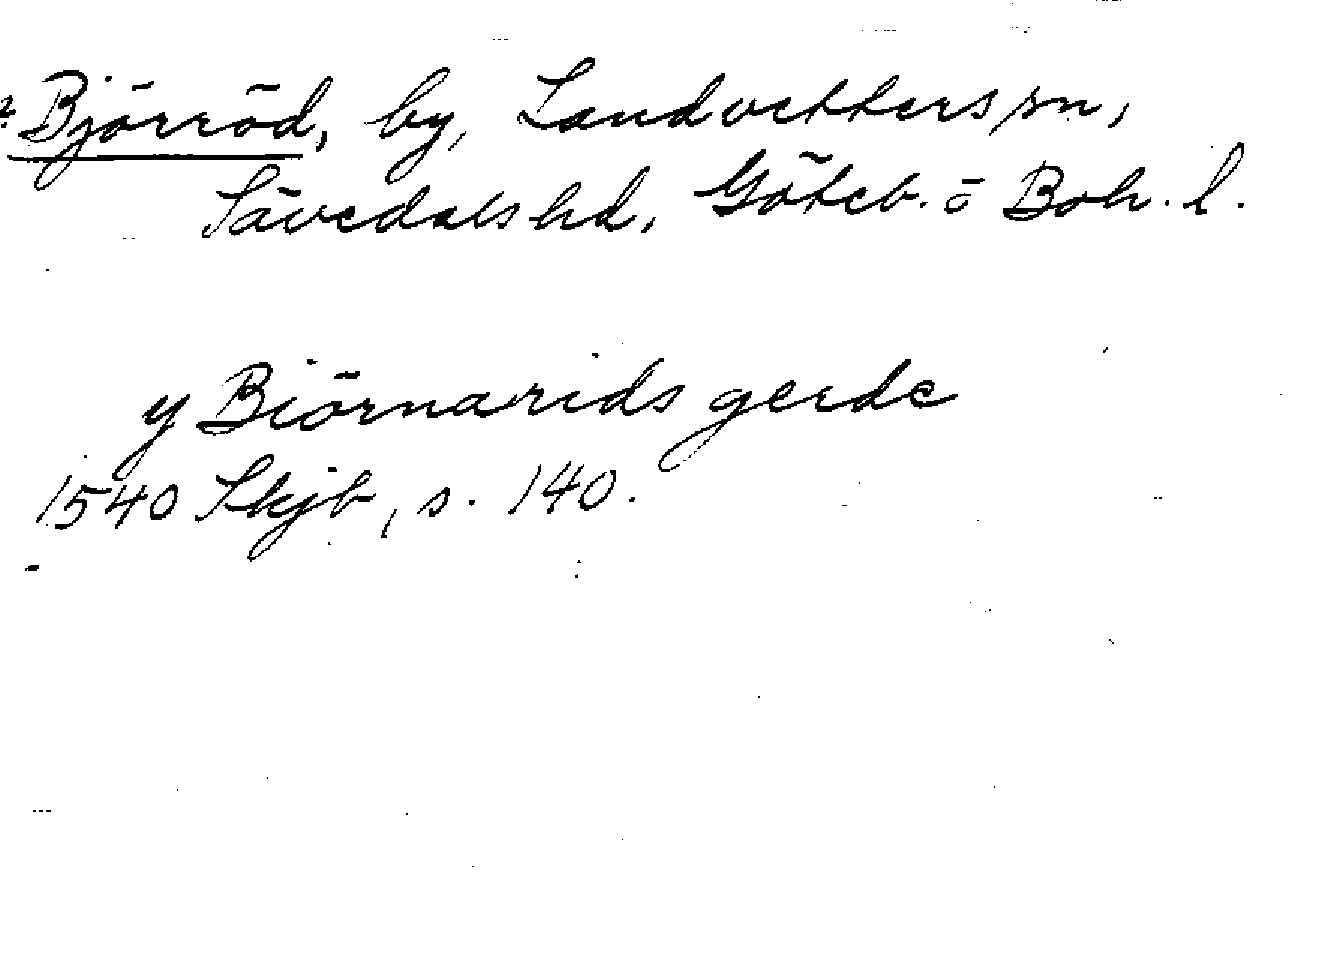 Björröd, by, Landvetters sn,
Sävedals hd, Göteb. o Boh. l.
y Biörnarids gerde
1540 Skjb, s. 140.